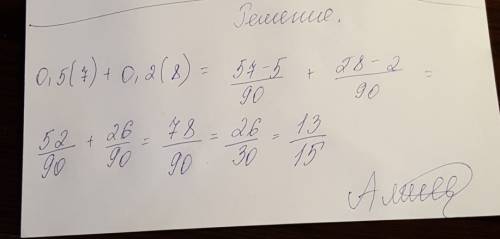 Решение.
0,5(7) + 0,2(8) = 57-5/90 + 28-2/90 =
52/90 + 26/90 = 78/90 = 26/30 = 13/15